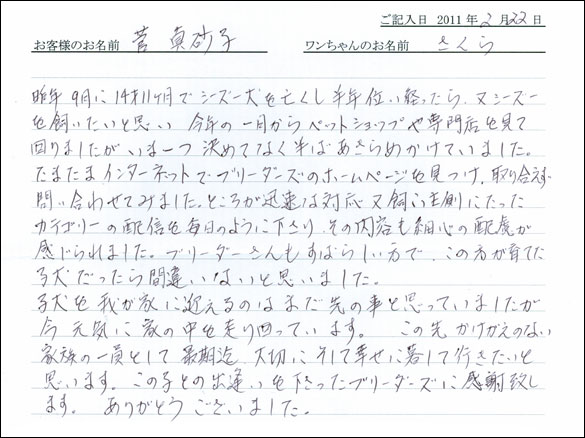 ご記入日 2011年2月22日
お客様のお名前 菅 真砂子 ワンちゃんのお名前 さくら
昨年9月に14才11ヶ月でシーズー犬を亡くし半年位い経ったら、又シーズー
を飼いたいと思い 今年の一月からペットショップや専門店を見て
回りましたがいま一つ決めてなく半ばあきらめかけていました。
たまたまインターネットでブリーダンズのホームページを見つけ、取り合えず
問い合わせてみました。ところが迅速な対応 又飼う主側にたった
カテゴリーの配信を毎日のように下さり、その内容も細心の配慮が
感じられました。ブリーダーさんもすばらしい方で、この方が育てた
子犬だったら間違いないと思いました。
子犬を我が家に迎えるのはまだ先の事と思っていましたが
今 元気に家の中を走り回っています。 この先かけがえのない
家族の一員として最期迄 大切に そして幸せに暮して行きたいと
思います。この子との出逢いを下さったブリーダーズに感謝致し
ます。 ありがとうございました。